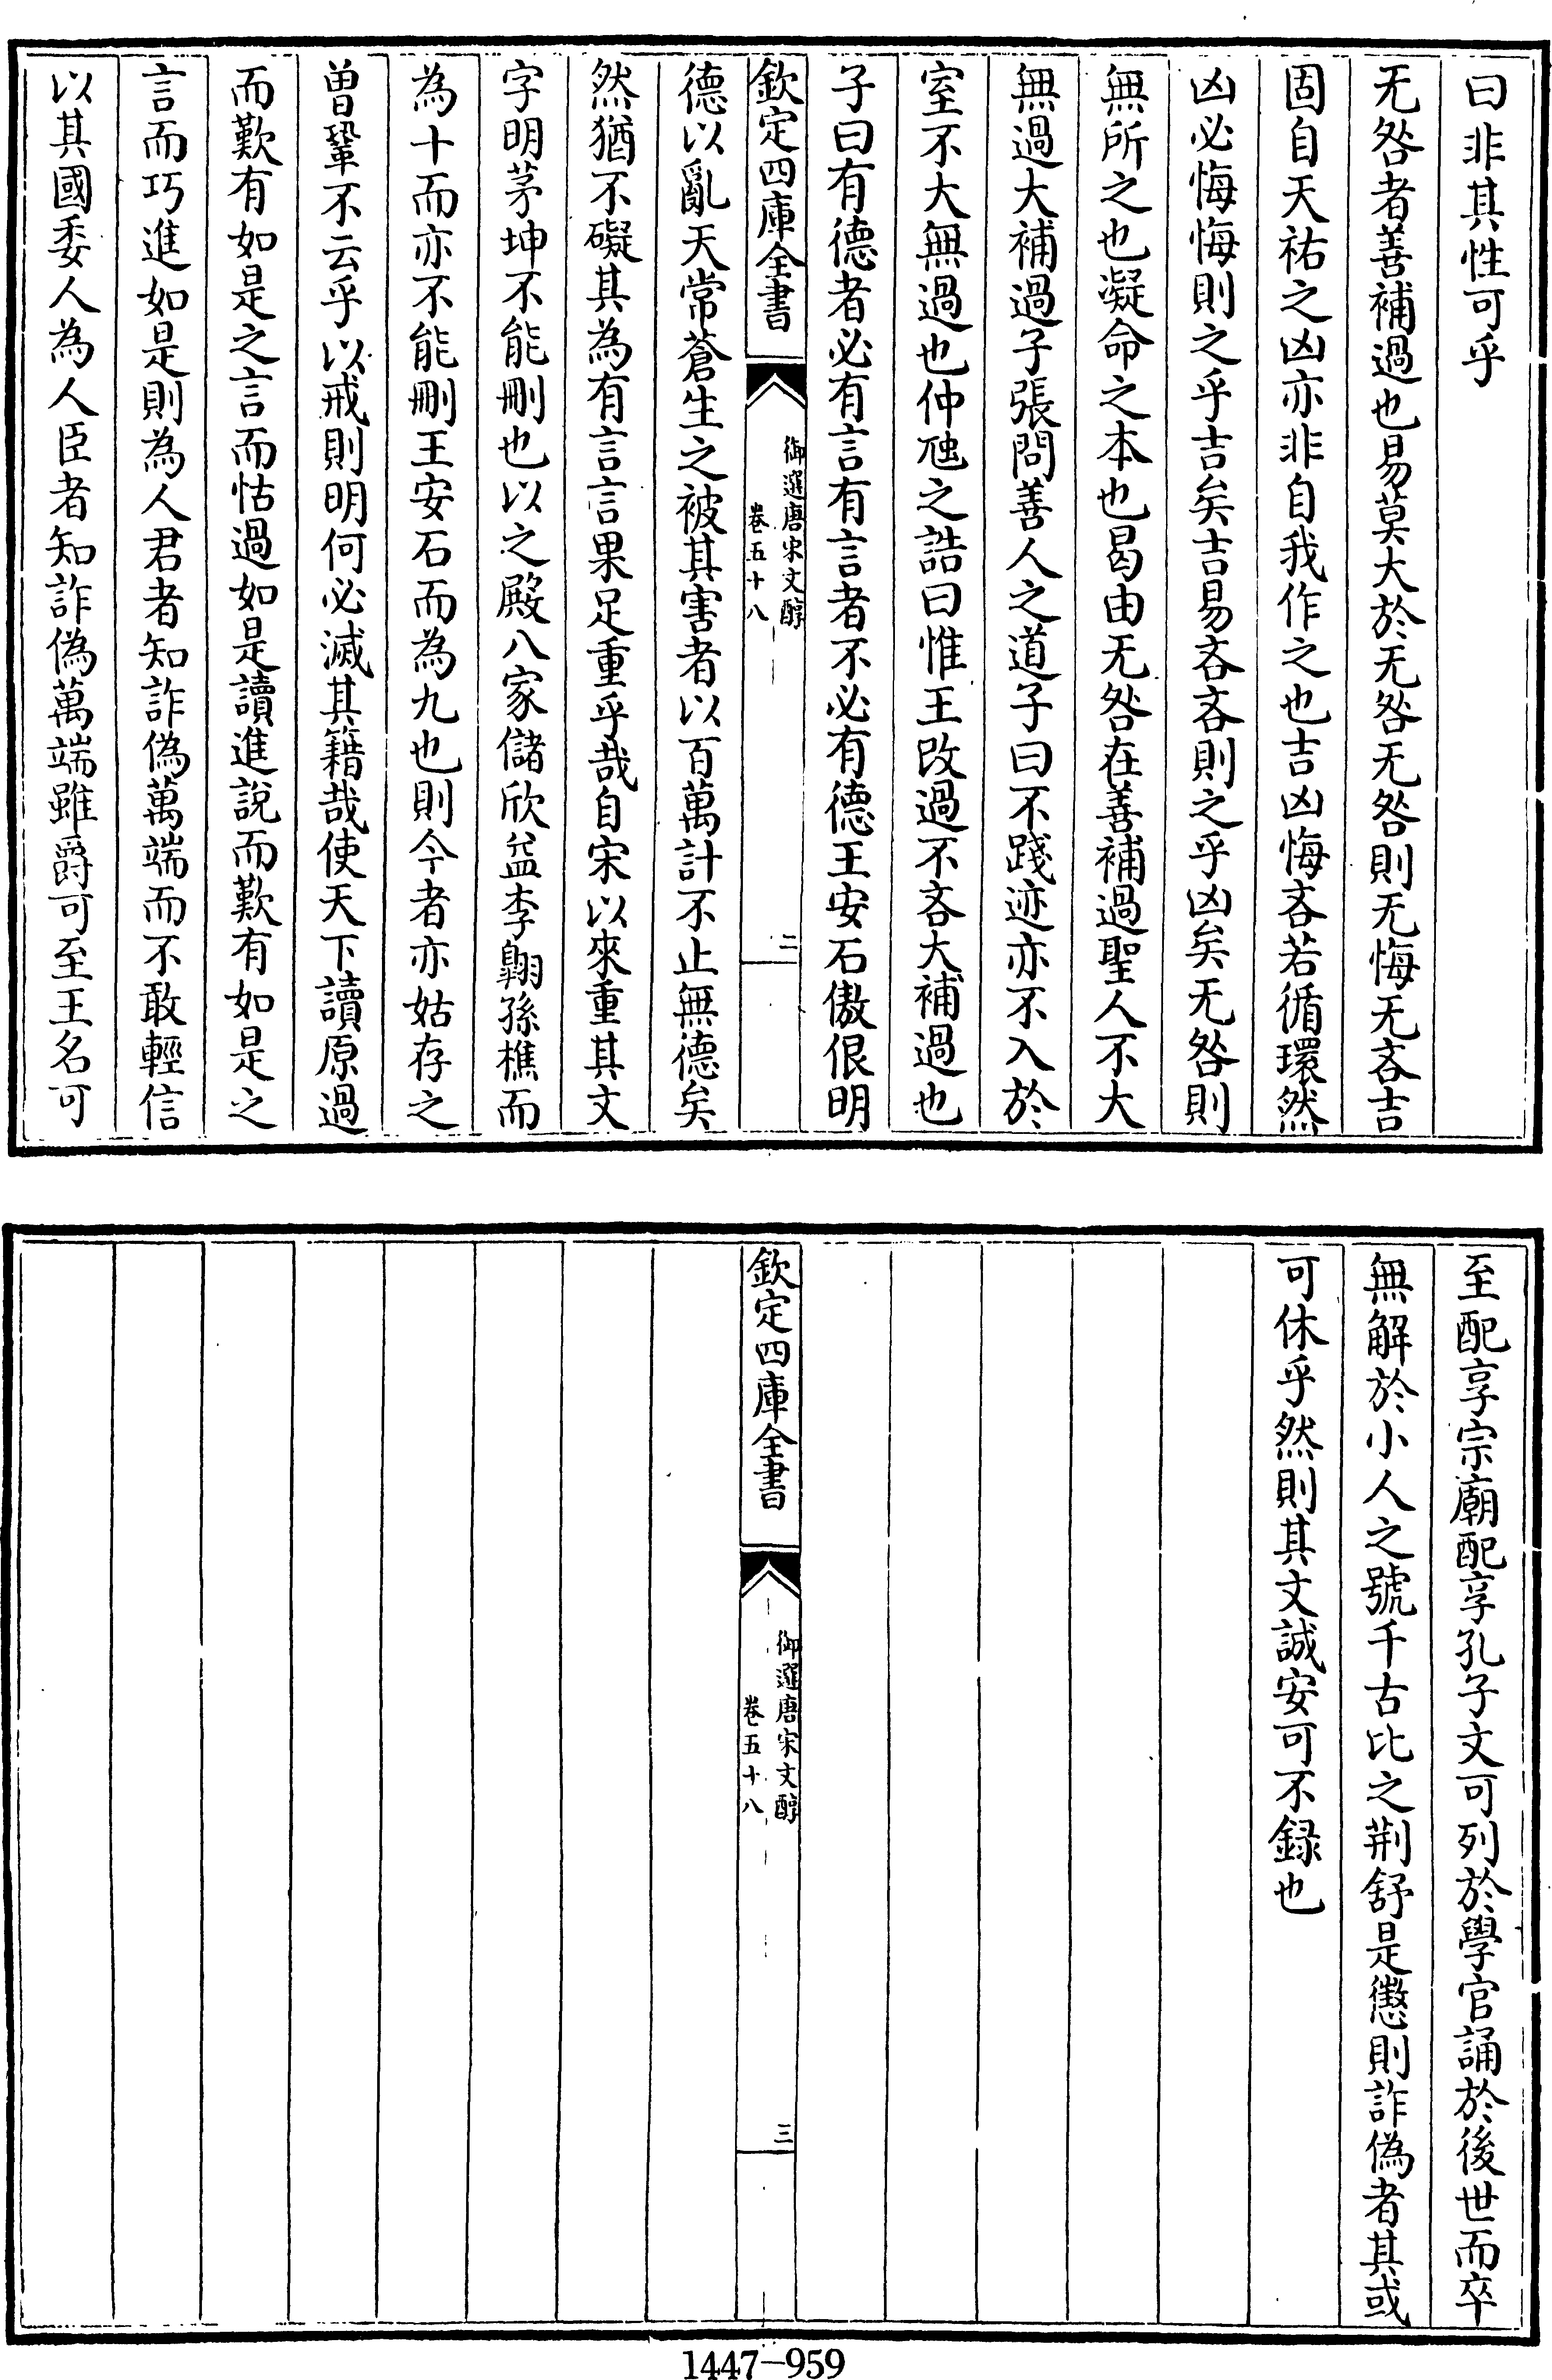 曰非其性可乎
无咎者善補過也易莫大於无咎无咎則无悔无吝吉
固自天祐之凶亦非自我作之也吉凶悔吝若循環然
凶必悔悔則之乎吉矣吉易吝吝則之乎凶矣无咎則
無所之也凝命之本也曷由无咎在善補過聖人不大
無過大補過子張問善人之道子曰不踐迹亦不入於
室不大無過也仲虺之誥曰惟王改過不吝大補過也
子曰有德者必有言有言者不必有德王安石傲佷明
欽定四庫全書
御選唐宋文醇
卷五十八
二
德以亂天常蒼生之被其害者以百萬計不止無德矣
然猶不礙其為有言言果足重乎哉自宋以來重其文
字明茅坤不能刪也以之殿八家儲欣益李翺孫樵而
為十而亦不能刪王安石而為九也則今者亦姑存之
曽鞏不云乎以戒則明何必滅其籍哉使天下讀原過
而歎有如是之言而怙過如是讀進說而歎有如是之
言而巧進如是則為人君者知詐偽萬端而不敢輕信
以其國委人為人臣者知詐偽萬端雖爵可至王名可
至配享宗廟配享孔子文可列於學官誦於後世而卒
無解於小人之號千古比之荆舒是懲則詐偽者其或
可休乎然則其文誠安可不録也
欽定四庫全書
御選唐宋文醇
卷五十八
三
1447-959